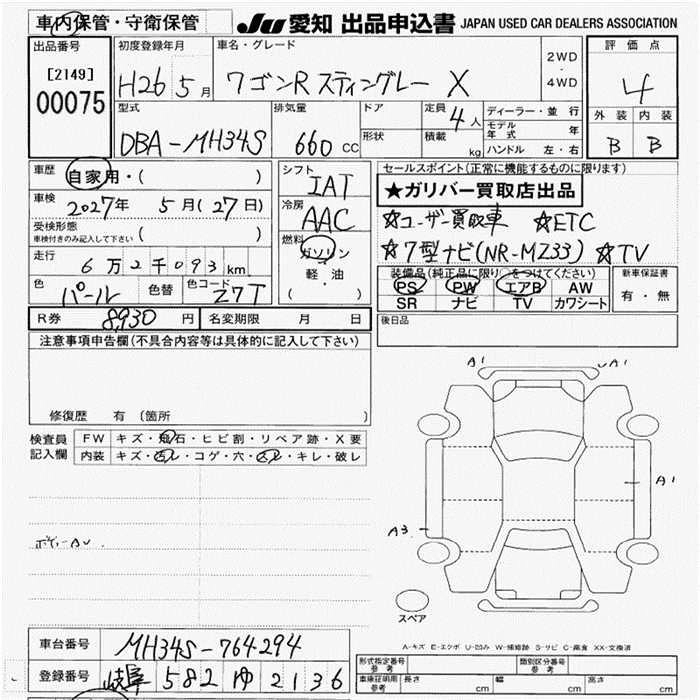 車内保管・守衛保管 JU 愛知 出品申込書 JAPAN USED CAR DEALERS ASSOCIATION
出品番号 初度登録年月 車名・グレード 評価点
[2149] H26 5月 ワゴンR スティングレー X 2WD・4WD 4
00075 型式 排気量 ドア 定員 4人 ディーラー・並行 外装 内装
DBA-MH34S 660cc 形状 積載 kg モデル年式 年 B B
ハンドル 左・右
車歴 自家用・( ) シフト IAT セールスポイント(正常に機能するものに限ります)
車検 2027年 5月(27日) 冷房 AAC ★ガリバー買取店出品
受検形態 ( ) ☆ユーザー買取車 ☆ETC
車検付きのみ記入して下さい 燃料 ☆7型ナビ(NR-MZ33) ☆TV
走行 6万2千093km ガソリン 装備品(純正品に限り○をつけてください) 新車保証書
軽・油 PS PW エアB AW 有・無
色 パール 色替 色コード Z7T ( ) SR ナビ TV カワシート
R券 8,930円 名変期限 月 日 後日品
注意事項申告欄(不具合内容等は具体的に記入して下さい)
A1 A1
修復歴 有 (箇所 )
検査員 FW キズ・飛石・ヒビ割・リペア跡・X要
記入欄 内装 キズ・汚レ・コゲ・穴・スレ・キレ・破レ
A1
A3
ボディーAU
スペア
A-キズ E-エクボ U-凹み W-補修跡 S-サビ C-腐食 XX-交換済
車台番号 MH34S-764294
登録番号 岐阜 582 ゆ 2136
形式指定番号 参考 類別区分番号 参考
車庫証明用 参考 長さ cm 幅 cm 高さ cm